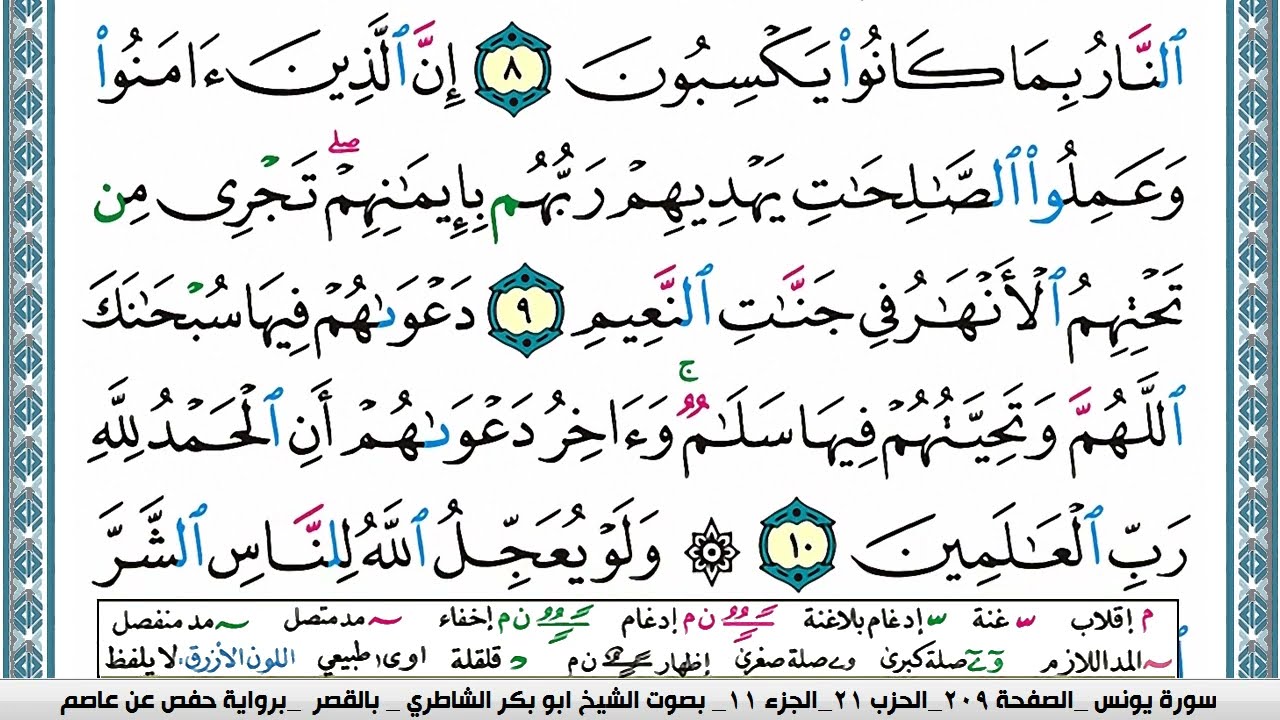 ٱلنَّارُ بِمَا كَانُوا۟ يَكْسِبُونَ ٨ إِنَّ ٱلَّذِينَ ءَامَنُوا۟
وَعَمِلُوا۟ ٱلصَّـٰلِحَـٰتِ يَهْدِيهِمْ رَبُّهُم بِإِيمَـٰنِهِمْ ۖ تَجْرِى مِن
تَحْتِهِمُ ٱلْأَنْهَـٰرُ فِى جَنَّـٰتِ ٱلنَّعِيمِ ٩ دَعْوَىٰهُمْ فِيهَا سُبْحَـٰنَكَ
ٱللَّهُمَّ وَتَحِيَّتُهُمْ فِيهَا سَلَـٰمٌ ۚ وَءَاخِرُ دَعْوَىٰهُمْ أَنِ ٱلْحَمْدُ لِلَّهِ
رَبِّ ٱلْعَـٰلَمِينَ ١٠ ۞ وَلَوْ يُعَجِّلُ ٱللَّهُ لِلنَّاسِ ٱلشَّرَّ
م إقلاب غنة إدغام بلا غنة ن م إدغام ن م إخفاء مد متصل مد منفصل
المد اللازم صلة كبرى صلة صغرى إظهار ن م قلقلة اوى طبيعي اللون الأزرق: لا يلفظ
سورة يونس _الصفحة ٢٠٩_الحزب ٢١_الجزء ١١_ بصوت الشيخ ابو بكر الشاطري _ بالقصر _برواية حفص عن عاصم